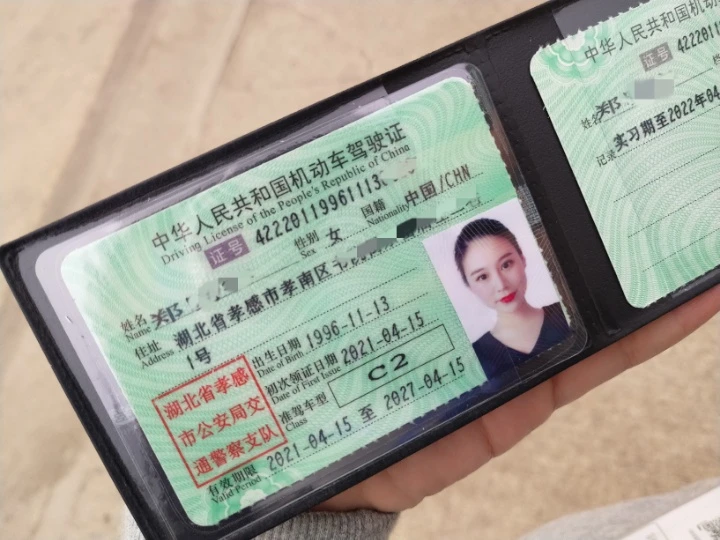 中华人民共和国机动车驾驶证
Driving License of the People's Republic of China
证号 42220119961113
姓名 郑
Name
性别 女
Sex
国籍 中国/CHN
Nationality
住址 湖北省孝感市孝南区
Address
1号
出生日期 1996-11-13
Date of Birth
初次领证日期 2021-04-15
Date of First Issue
准驾车型 C2
Class
湖北省孝感
市公安局交
通警察支队
有效期限 2021-04-15 至 2027-04-15
Valid Period
中华人民共和国机动
证号 4222011
姓名 郑
记录 实习期至2022年04